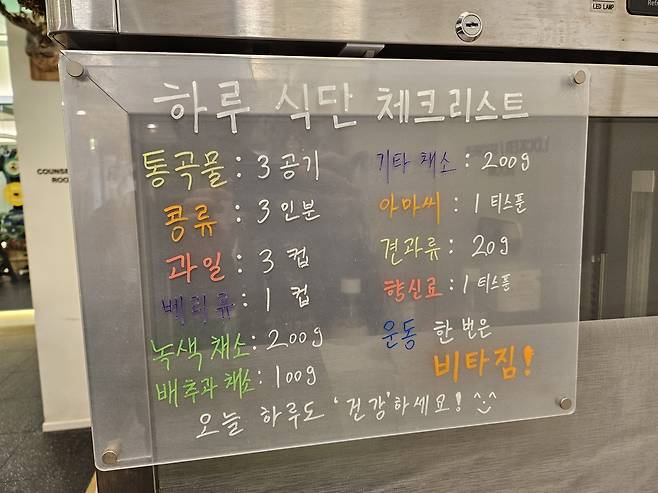 하루 식단 체크리스트
통곡물 : 3 공기
콩류 : 3 인분
과일 : 3 컵
베리류 : 1 컵
녹색 채소 : 200g
배추과 채소 : 100g
기타 채소 : 200g
아마씨 : 1 티스푼
견과류 : 20g
향신료 : 1 티스푼
운동 한 번은
비타짐!
오늘 하루도 '건강'하세요! ^:^
LED LAMP
COUNSE
ROO